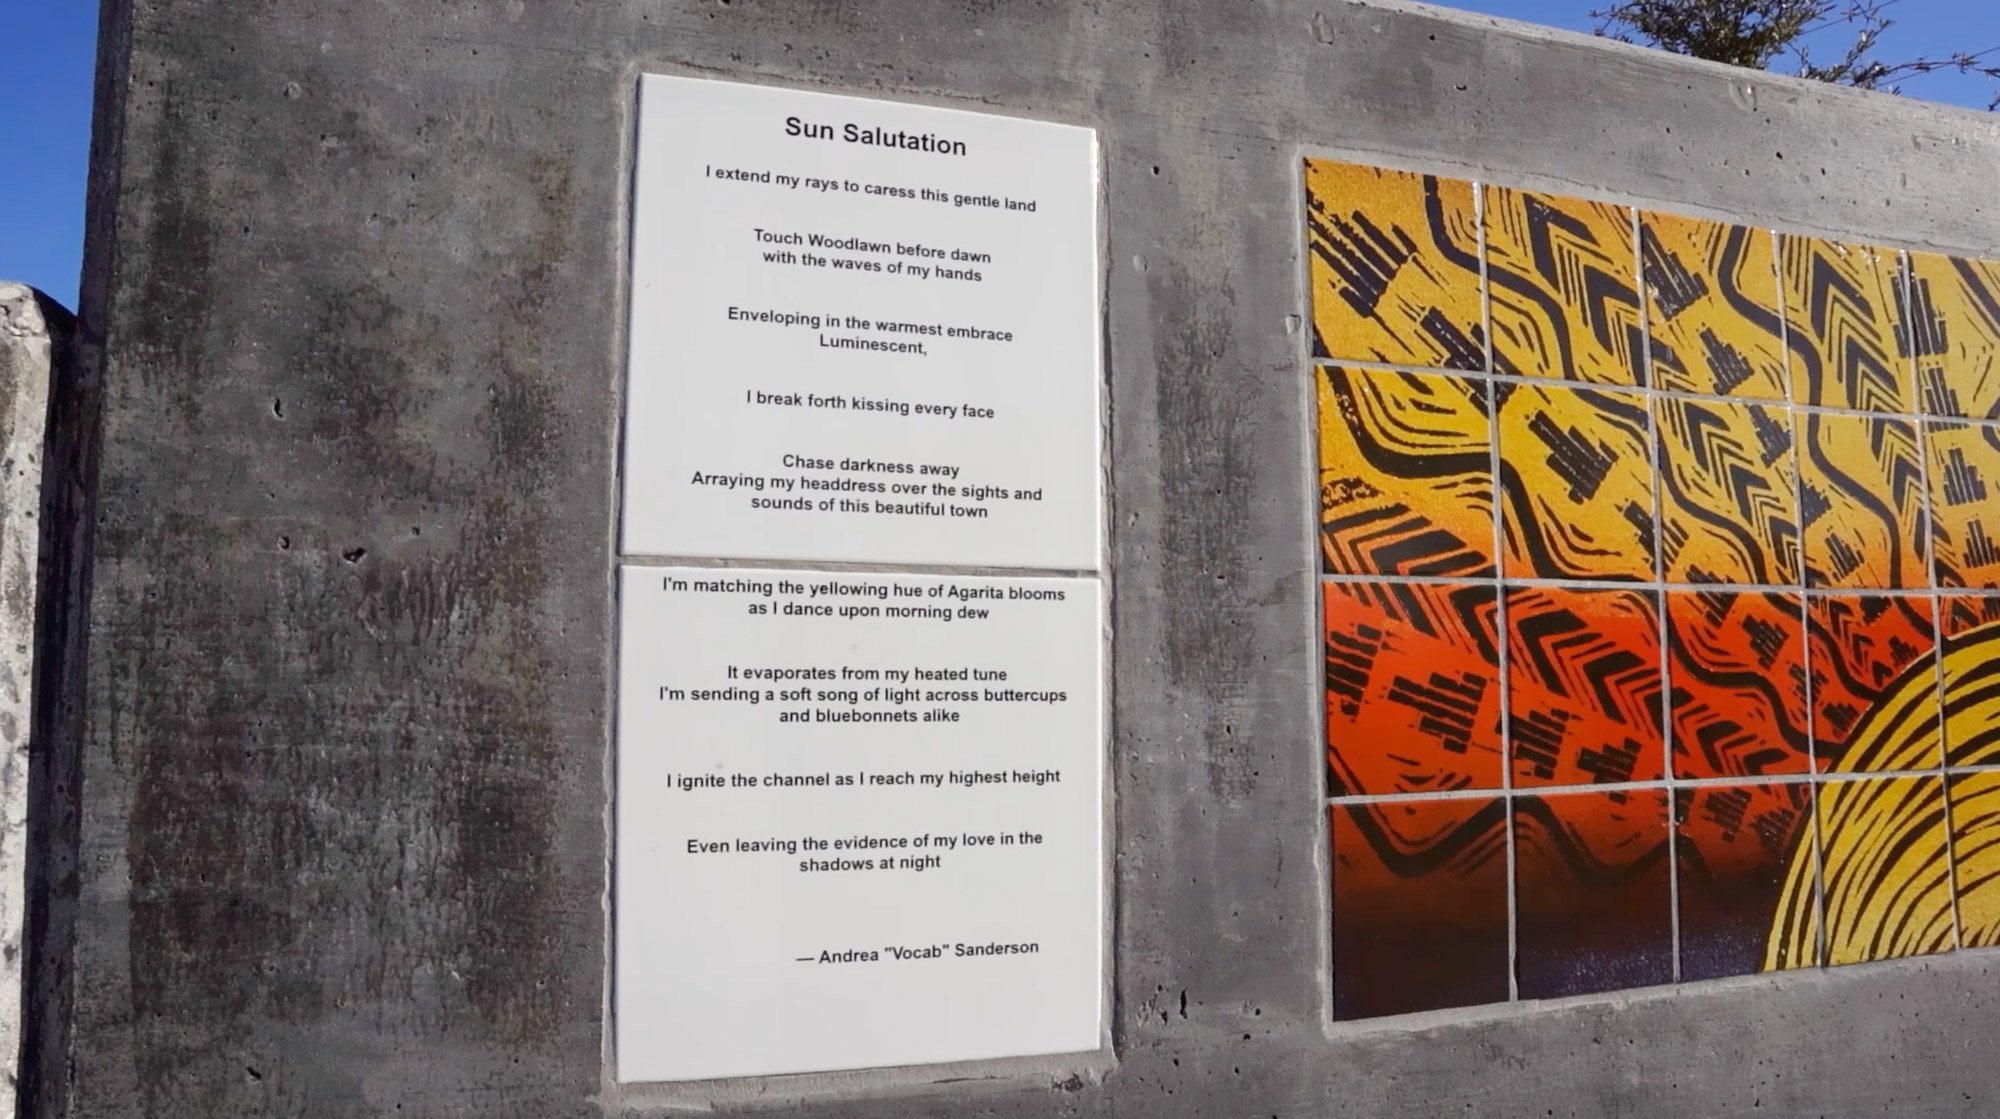 Sun Salutation
I extend my rays to caress this gentle land
Touch Woodlawn before dawn
with the waves of my hands
Enveloping in the warmest embrace
Luminescent,
I break forth kissing every face
Chase darkness away
Arraying my headdress over the sights and
sounds of this beautiful town
I'm matching the yellowing hue of Agarita blooms
as I dance upon morning dew
It evaporates from my heated tune
I'm sending a soft song of light across buttercups
and bluebonnets alike
I ignite the channel as I reach my highest height
Even leaving the evidence of my love in the
shadows at night
— Andrea "Vocab" Sanderson